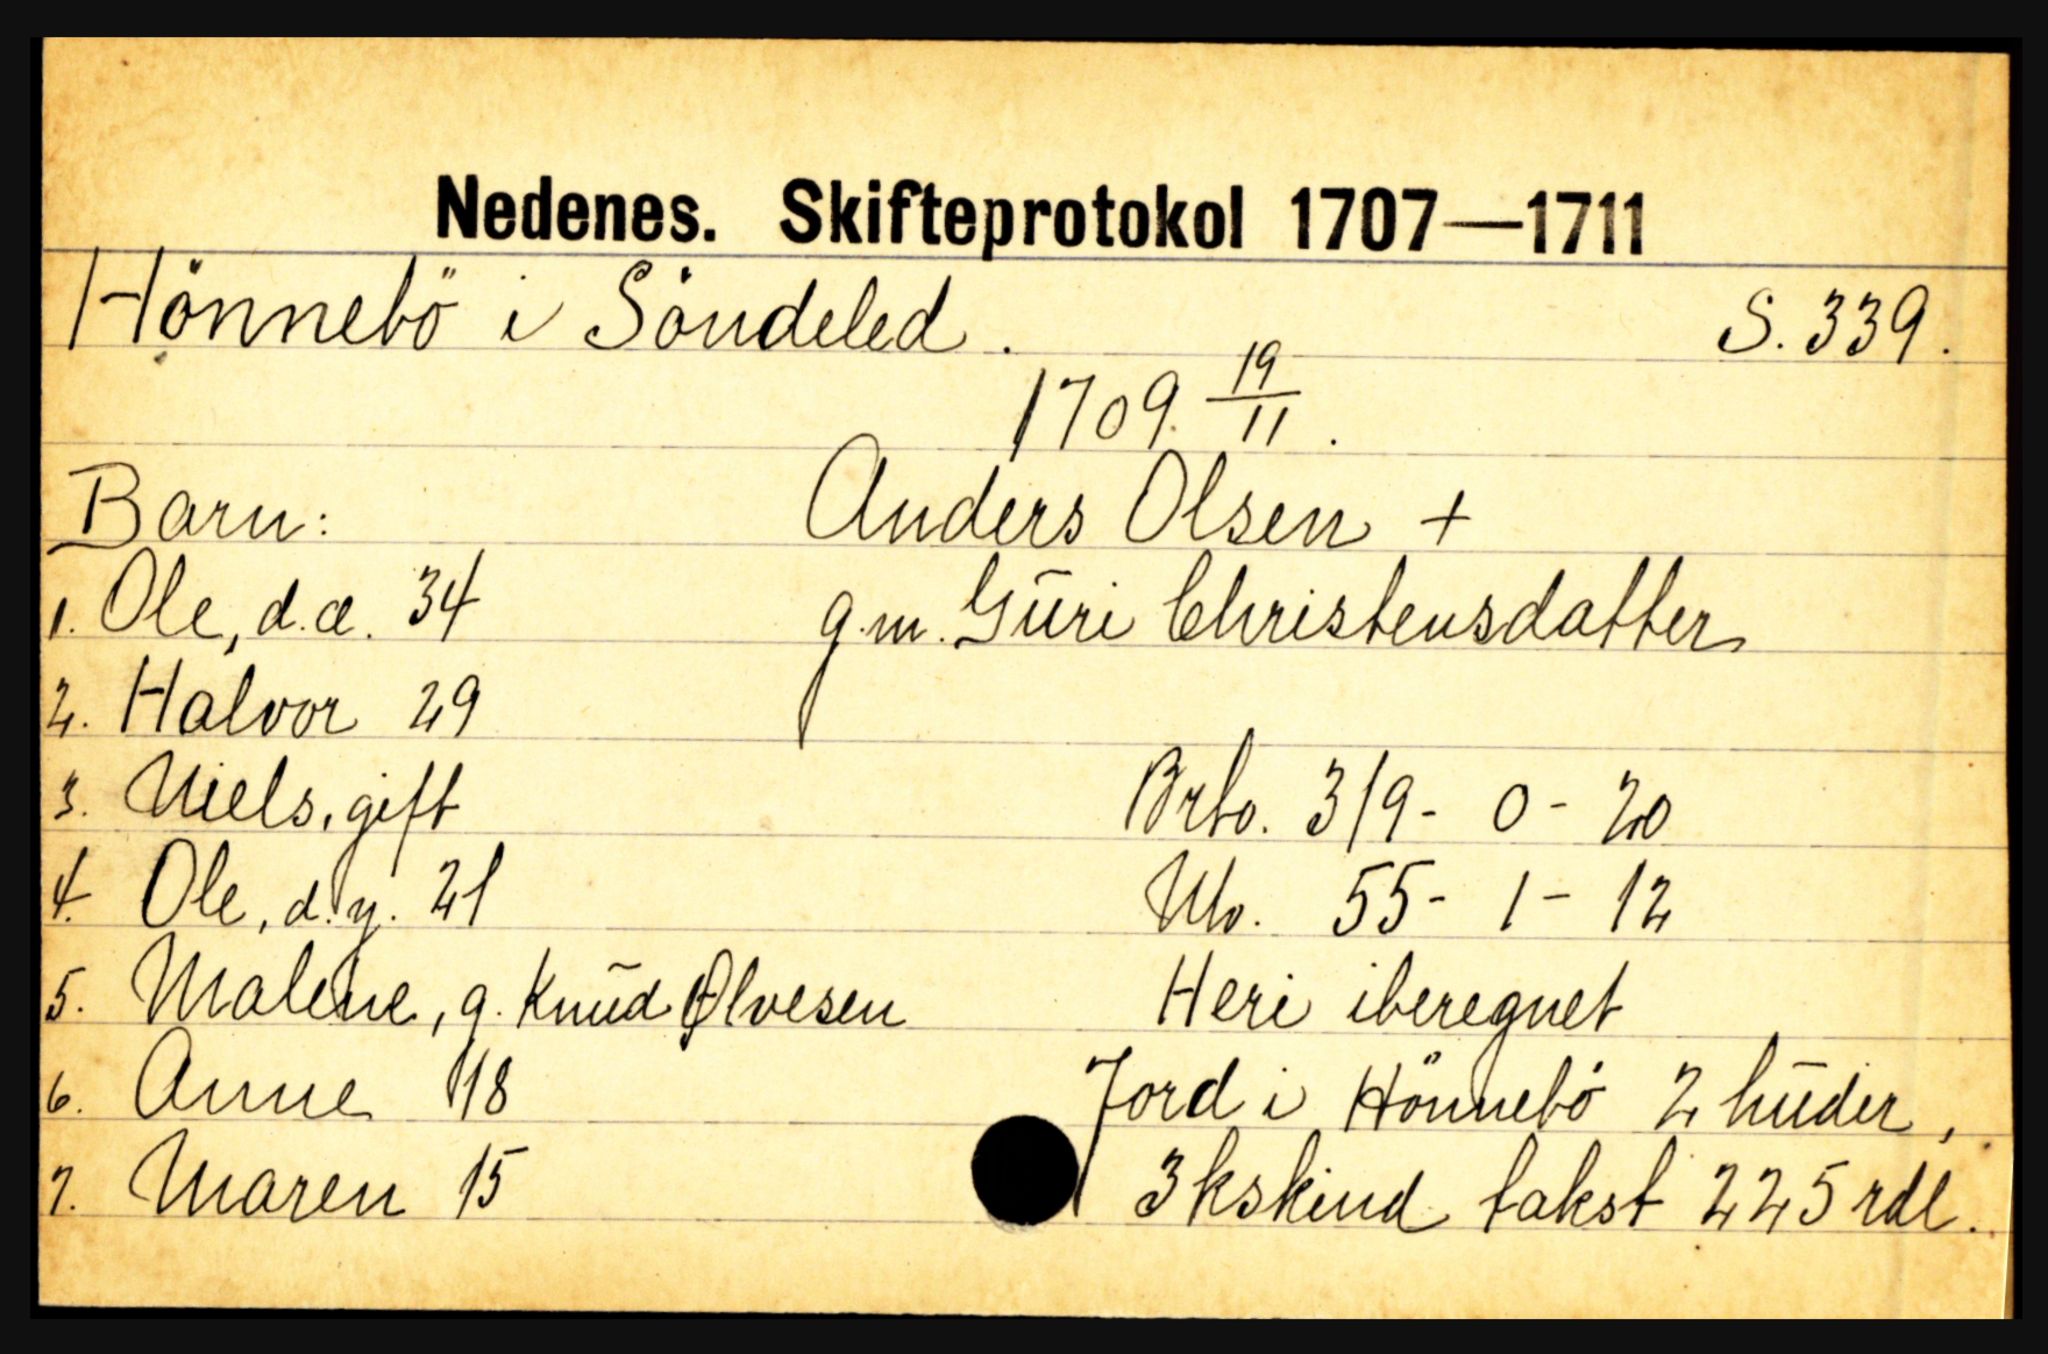 Nedenes. Skifteprotokol 1707—1711
Hönnebö i Söndeled. S. 339.
1709 19/11.
Anders Olsen +
g.m. Guri Christensdatter
Barn:
1. Ole, d.æ. 34
2. Halvor 29
3. Niels, gift
4. Ole, d.y. 21
5. Malene, g. Knud Ølvesen
6. Anne 18
7. Maren 15
Brto. 319 - 0 - 20
Nto. 55 - 1 - 12
Heri iberegnet
Jord i Hönnebö 2 huder,
3 kskind takst 225 rdl.